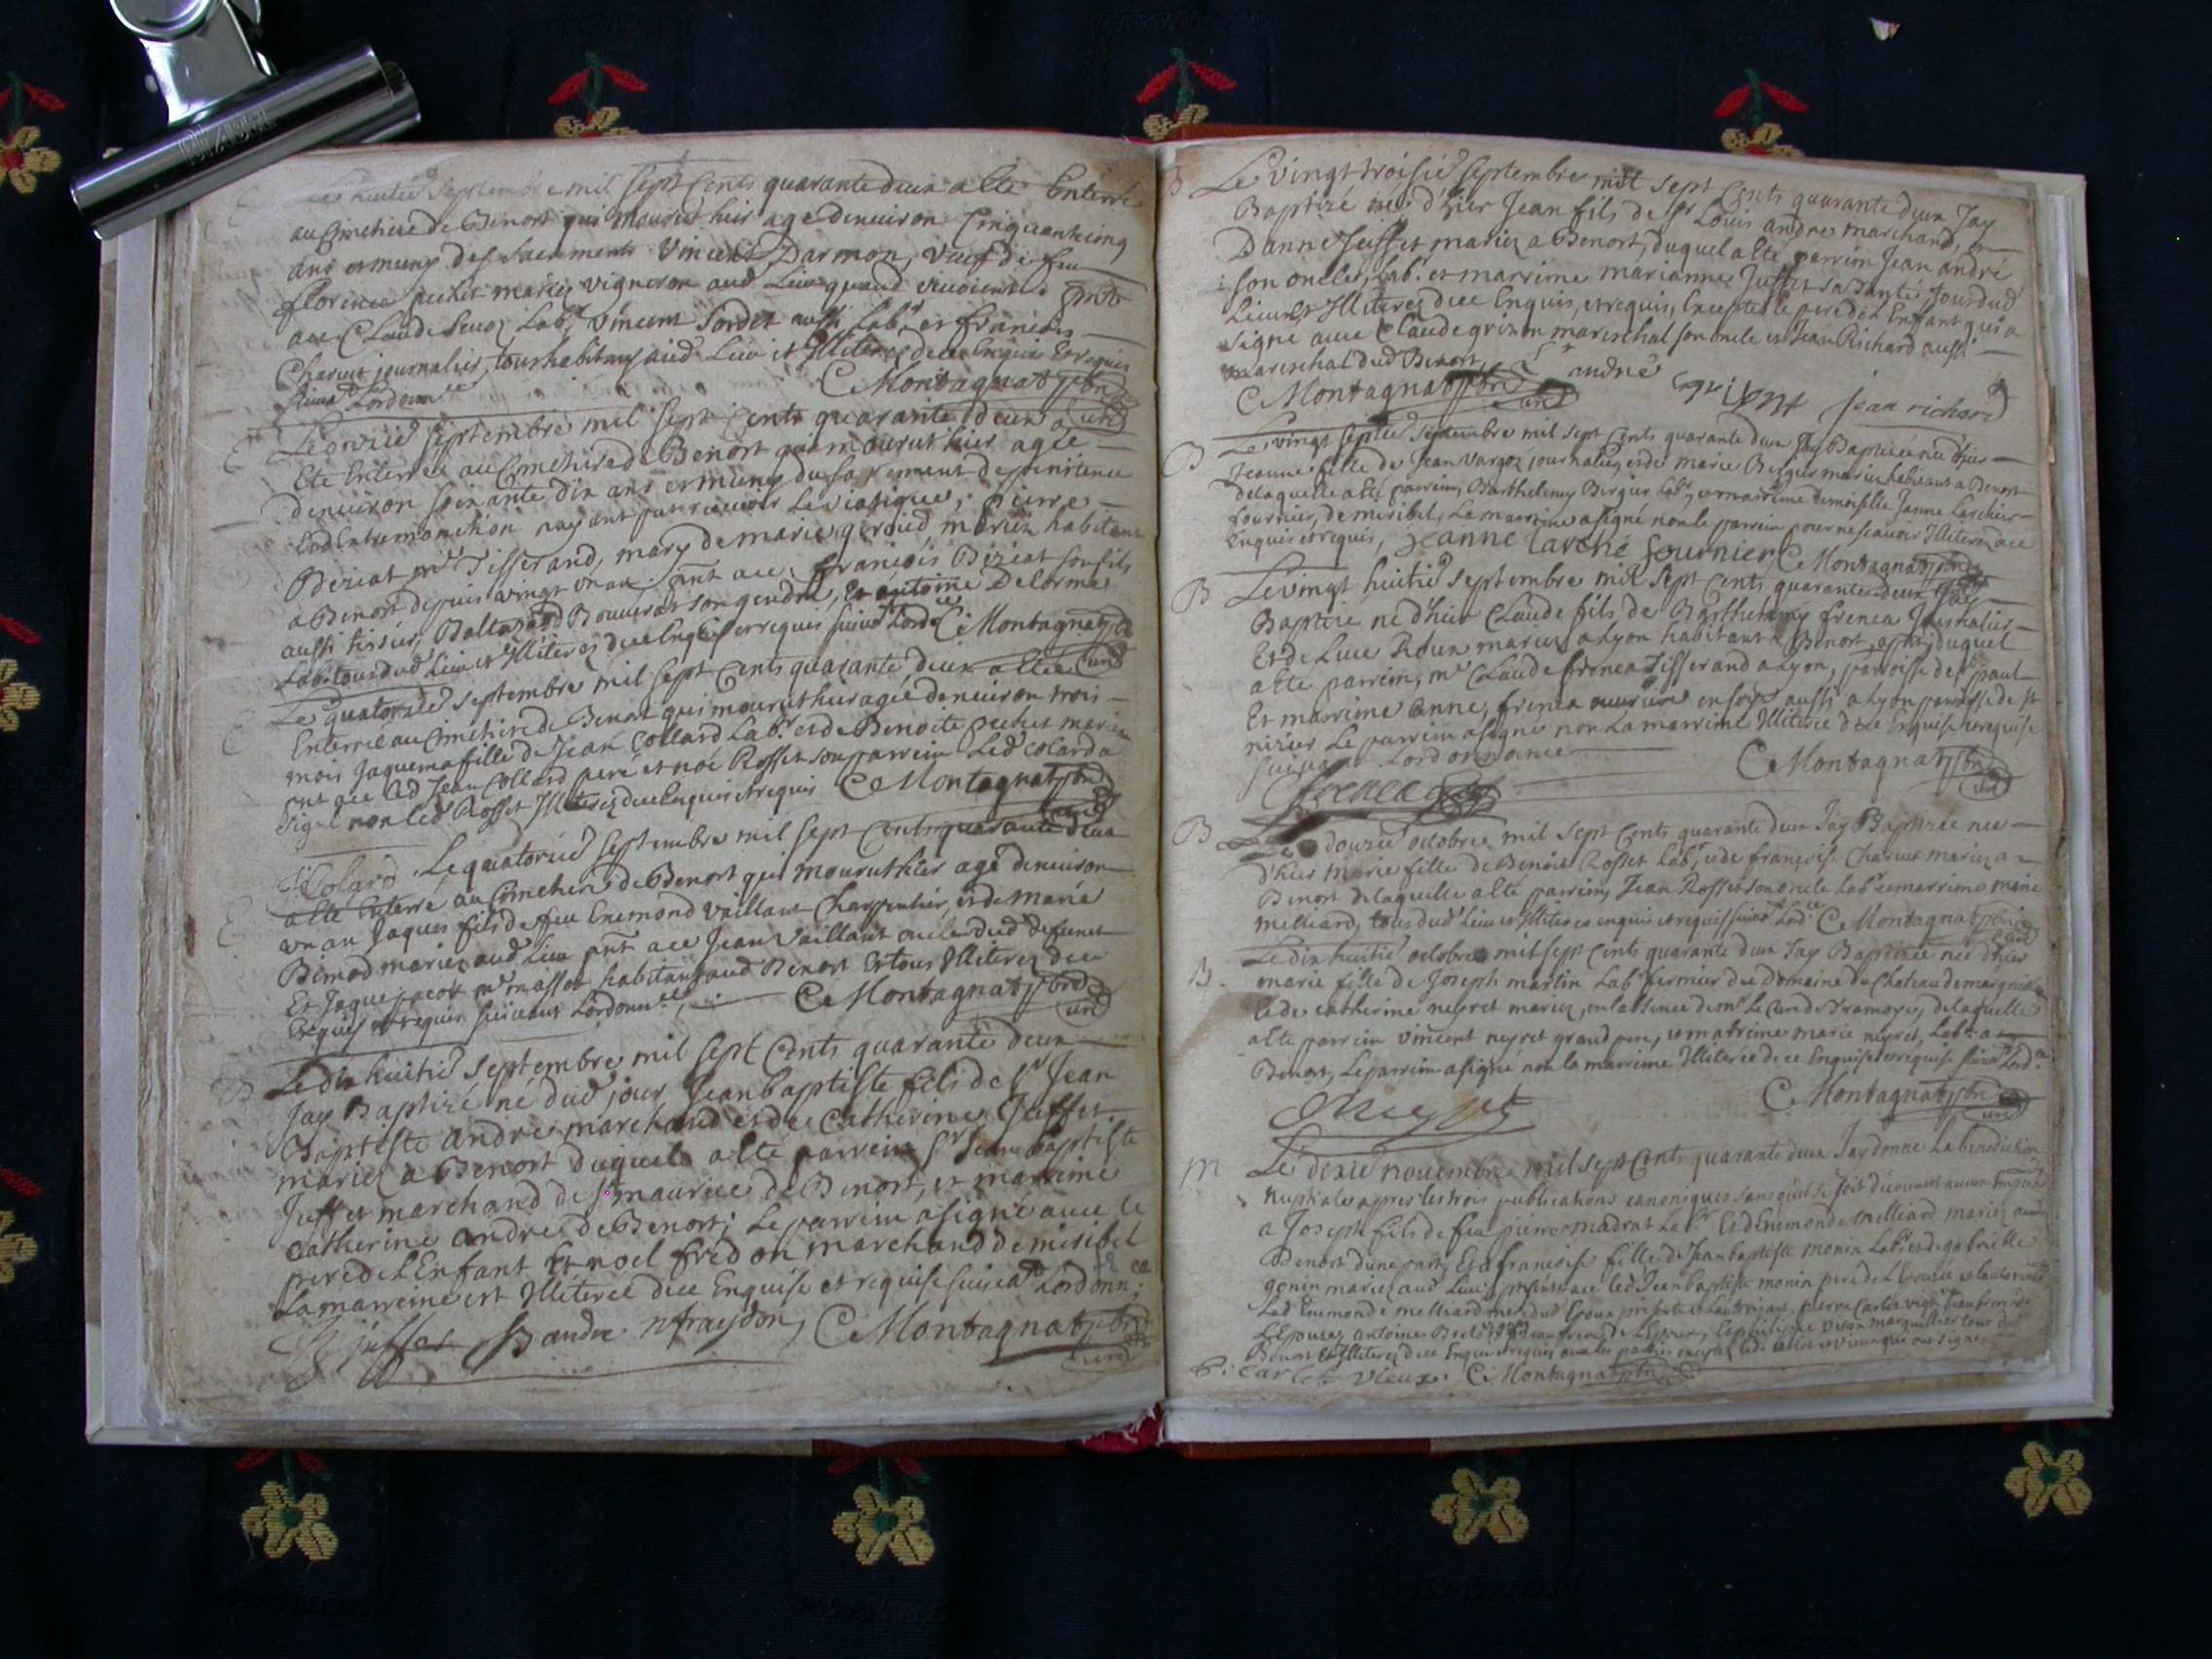 E
Le huitie septembre mil sept Cents quarante deux a été Enterré
au Cimetiere de Benost qui mourut hier agé denuiron Cinquantecinq
ans et muny des sacrements Vincent Darmon, veuf de feu
florence pechet mariez vigneron aud Lieu
auec Claude Labr Vincent Sordet aussi Labr et francois
Charuet journalier, tous habitans aud Lieu et Illiterez de ce Enquis Et requis
suiuat Lordonnce C Montagnat ptre
curé
E
Le onzie septembre mil sept Cents quarante deux a
Eté Enterré au Cimetiere de Benost qui mourut hier agé
denuiron soixante dix ans et muny du sacrement de penitence
nayant put receuoir Le viatique, pierre
Beriat me Tisserand, mary de marie geraud, mariez habitant
a Benost depuis vingt un an pnt auec francois Beriat son fils
aussi tissier, Baltazard Bouuerat son gendre, Et antoine Delorme
Labr tous dud Lieu et Illiterez de ce Enquis et requis suiuat Lordce C Montagnat ptre
curé
E
Le quatorzie septembre mil sept Cents quarante deux a été
Enterrée au Cimetiere de Benost qui mourut hier agée denuiron trois
mois Jaquema fille de Jean Collard Labr et de Benoite pechet mariez
pnt auec led Jean Collard pere et noé Rosset son parrein Led Colard a
signé non led Rosset Illiterez de ce Enquis et requis C Montagnat ptre
curé
E
Colard . Le quatorzie septembre mil sept Cents quarante deux
a été Enterré au Cimetiere de Benost qui mourut hier agé denuiron
un an Jaques fils de feu Enemond Vaillant Charpentier, et de marie
Bimod mariez aud Lieu pnt auec Jean Vaillant oncle dud defunct
Et Jaque pacot me masson habitans aud Benost Et tous Illiterez de ce
Enquis et requis suiuant Lordonnce, C Montagnat ptre
curé
B
Le dix huitie septembre mil sept Cents quarante deux
Jay Baptizé né dud jour Jean baptiste fils de sr Jean
Baptiste andré marchand et de Catherine Juffet
mariez a Benost duquel a été parrein sr Jean baptiste
Juffet marchand de st maurice de Benost, et marreine
Catherine andre de Benost; Le parrein a signé auec le
pere de L'Enfant Et noel fredon marchand de miribel
La marreine est Illiterée de ce Enquise et requise suiuat Lordonnce
juffet B andre n fraydon C Montagnat ptre
curé
B Le vingt troisie septembre mil sept Cents quarante deux Jay
Baptizé né d'hier Jean fils de sr Louis andre marchand, et
D anne Juffet mariez a Benost, duquel a été parrein Jean andré
son oncle, Labr et marreine marianne Juffet sa tante, Tous dud
Lieu Et Illiterez de ce Enquis, et requis, Excepté le pere de L'Enfant qui a
signé auec Claude grizon mareschal son oncle et Jean Richard aussi
mareschal dud Benost,
C Montagnat ptre L andré grizon jean richard
curé
B
Le vingt septie septembre mil sept Cents quarante deux Jay Baptizé née d'hier
Jeanne fille de Jean Vargoz journalier, et de marie Bergier mariez habitant a Benost
de laquelle a été parrein, Barthelemy Bergier Labr, et marreine demoiselle Jeanne Larchier
fournier, de miribel, La marreine a signé non le parrein pour ne scauoir Illiteré de ce
Enquis et requis, Jeanne Larché fournier C Montagnat ptre
B Le vingt huitie septembre mil sept Cents quarante deux Jay
Baptizé né d'hier Claude fils de Barthelemy frenea Journalier
Et de Luce Roux mariez a Lyon habitant a Benost, duquel
a été parrein, me Claude frenea Tisserand a Lyon, parroisse de st paul
Et marreine anne, frenea ouuriere en soye aussi a Lyon parroisse de st
nizier Le parrein a signé non La marreine Illiterée de ce Enquise et requise
suiuant Lordonnance C Montagnat ptre
frenea curé
B Le douzie octobre mil sept Cents quarante deux Jay Baptizée née
d'hier marie fille de Benoit Rosset Labr, et de francoise Charuet mariez a
Benost de laquelle a été parrein, Jean Rosset son oncle Labr et marreine marie
melliard, tous dud Lieu et Illiterez enquis et requis suiuat Lordce C Montagnat ptre
curé
B.
Le dix huitie octobre mil sept Cents quarante deux Jay Baptizée née d'hier
marie fille de Joseph martin Labr fermier du Domaine du Chateau de
et de catherine neyret mariez, en labsence de mr Le Curé de Tramoye, de laquelle
a été parrein Vincent neyret grand pere, et marreine marie neyret, Labr a
Benost, Le parrein a signé non la marreine Illiterée de ce Enquise et requise suiuat Lordce
C Montagnat ptre
neyret curé
M Le dixie nouembre mil sept Cents quarante deux Jay donné La benediction
nuptiale apres les trois publications canoniques sans quil se soit decouuert aucun
a Joseph fils de feu pierre madrat Labr Et d'Enemonde melliard mariez aud
Benost d'une part, Et a francoise fille de Jean baptiste monin Labr et de gabrielle
gonin mariez aud Lieu, presents auec led Jean baptiste monin pere de L'Epouse
Lad Enemonde melliard mere dud Epoux presente pierre Carlet vign beau frere de
L'Epouse, antoine beau frere de L'Epoux, marguillier tous de
Benost Et Illiterez de ce Enquis et requis
p: carlet vieux. C Montagnat ptre